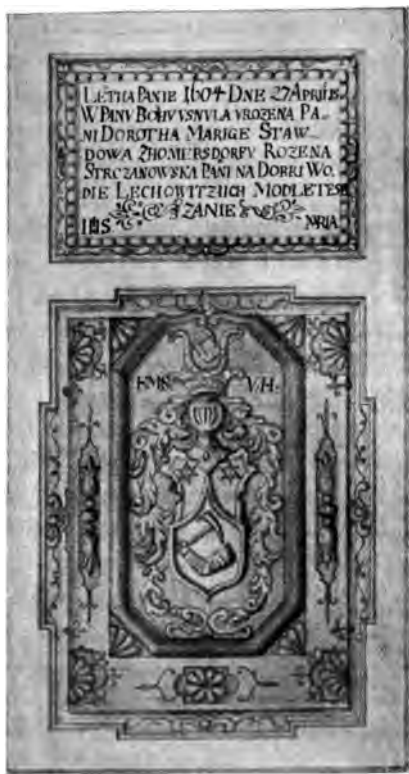 LETHA PANIE 1604 DNE 27 APRILIS
W PANV BOHV VSNVLA VROZENA PA_
NI DOROTHA MARIGE STAW_
DOWA ZHOMERSDORFV ROZENA
STRCZANOWSKA PANI NA DOBRI WO_
DIE LECHOWITZIICH MODLETESE
ZANIE
IHS MARIA
V.H.